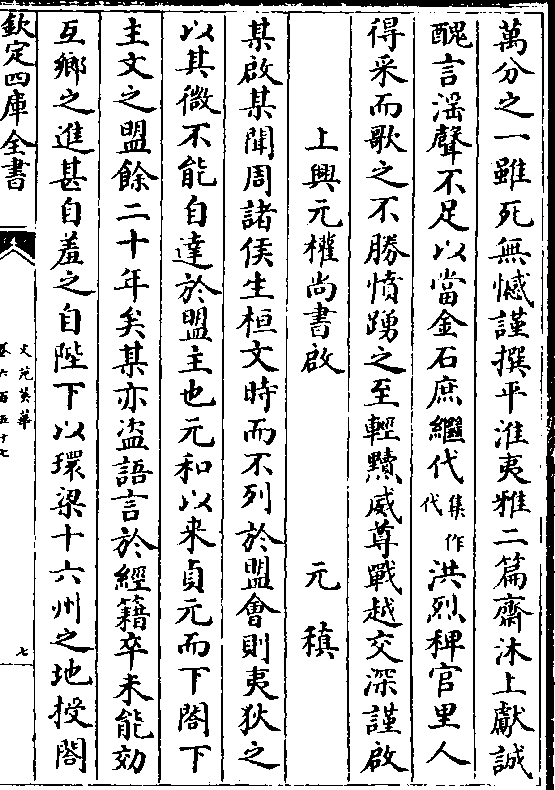 萬分之一雖死無憾謹撰平淮夷雅二篇齋沐上獻誠
醜言淫聲不足以當金石庶繼代集作代洪烈稗官里人
得采而歌之不勝憤踴之至輕黷威尊戰越交深謹啟
上興元權尚書啟 元稹
某啟某聞周諸侯生桓文時而不列於盟會則夷狄之
以其微不能自達於盟主也元和以来貞元而下閣下
主文之盟餘二十年矣某亦盗語言於經籍卒未能効
互鄉之進甚自羞之自陛下以環梁十六州之地授閣
欽定四庫全書
文苑英華
卷六百五十七
七